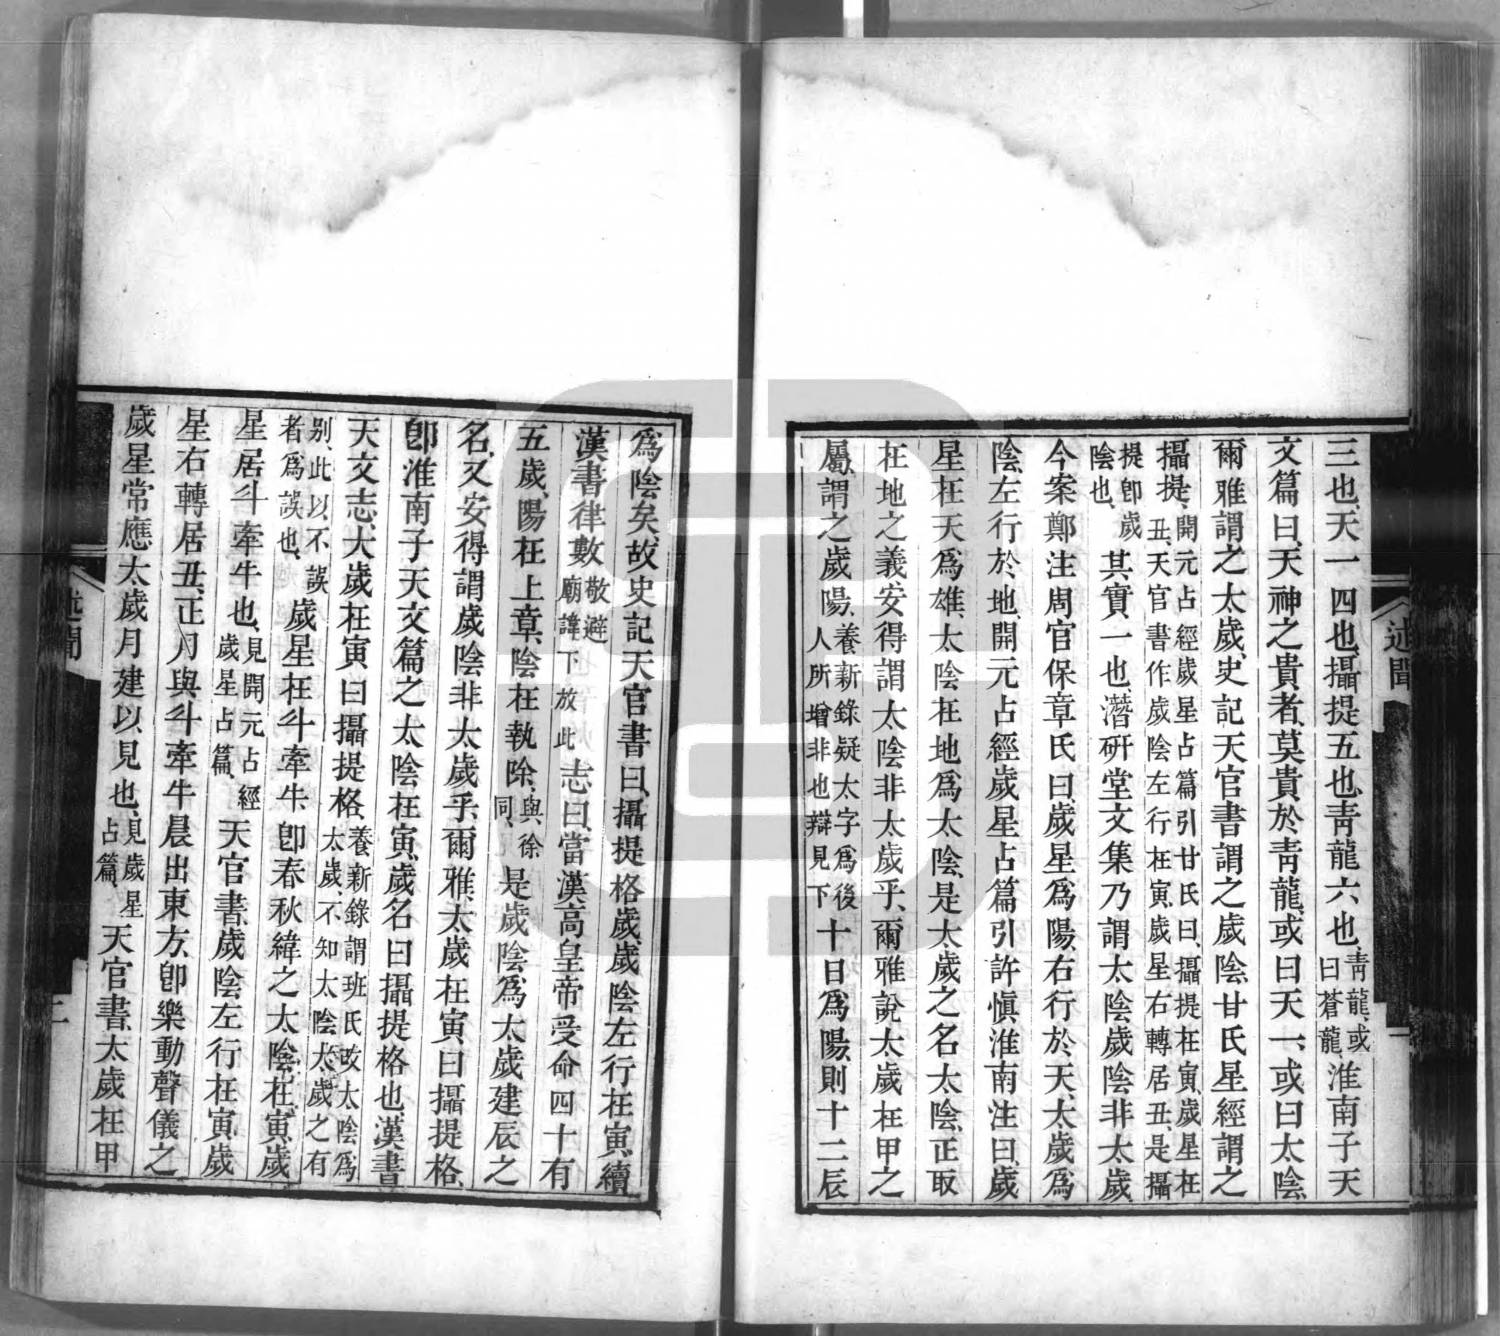 三也、天一四也、攝提五也、靑龍六也、靑龍、或曰蒼龍、淮南子天
文篇曰、天神之貴者、莫貴於靑龍、或曰天一、或曰太陰、
爾雅謂之太歲、史記天官書謂之歲陰、甘氏星經謂之
攝提、開元占經歲星占篇引甘氏曰、攝提在寅、歲星在丑、天官書作歲陰左行在寅、歲星右轉居丑、是攝
提卽歲陰也、其實一也、潛硏堂文集乃謂太陰歲陰非太歲、
今案鄭注周官保章氏曰、歲星爲陽、右行於天、太歲爲
陰、左行於地、開元占經歲星占篇引許愼淮南注曰、歲
星在天爲雄、太陰在地爲太陰、是太歲之名太陰、正取
在地之義、安得謂太陰非太歲乎、爾雅說太歲在甲之
屬、謂之歲陽、養新錄疑太字爲後人所增、非也、辯見下、十日爲陽、則十二辰
爲陰矣、故史記天官書曰、攝提格歲、歲陰左行在寅、續
漢書律數敬避廟諱、下放此、志曰、當漢高皇帝受命四十有
五歲、陽在上章、陰在執除、與徐同、是歲陰爲太歲建辰之
名、又安得謂歲陰非太歲乎、爾雅、太歲在寅曰攝提格、
卽淮南子天文篇之太陰在寅、歲名曰攝提格也、漢書
天文志、太歲在寅曰攝提格、養新錄謂班氏改太陰爲太歲、不知太陰太歲之有
別、此以不誤者爲誤也、歲星在斗牽牛、卽春秋緯之太陰在寅、歲
星居斗牽牛也、見開元占經歲星占篇、天官書、歲陰左行在寅、歲
星右轉居丑、正月與斗牽牛晨出東方、卽樂動聲儀之
歲星常應太歲月建以見也、見歲星占篇、天官書、太歲在甲
述聞
一
述聞
二